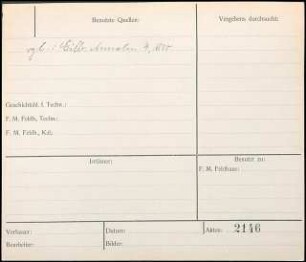 Benutzte Quellen:
Vergebens durchsucht:
vgl. Gilb. Annalen
Geschichtsbl. f. Techn.:
F. M. Feldh., Techn.:
F. M. Feldh., Kal.:
Irrtümer:
Benutzt zu:
F. M. Feldhaus:
Verfasser:
Datum:
Akten: 2146
Bearbeiter:
Bilder: